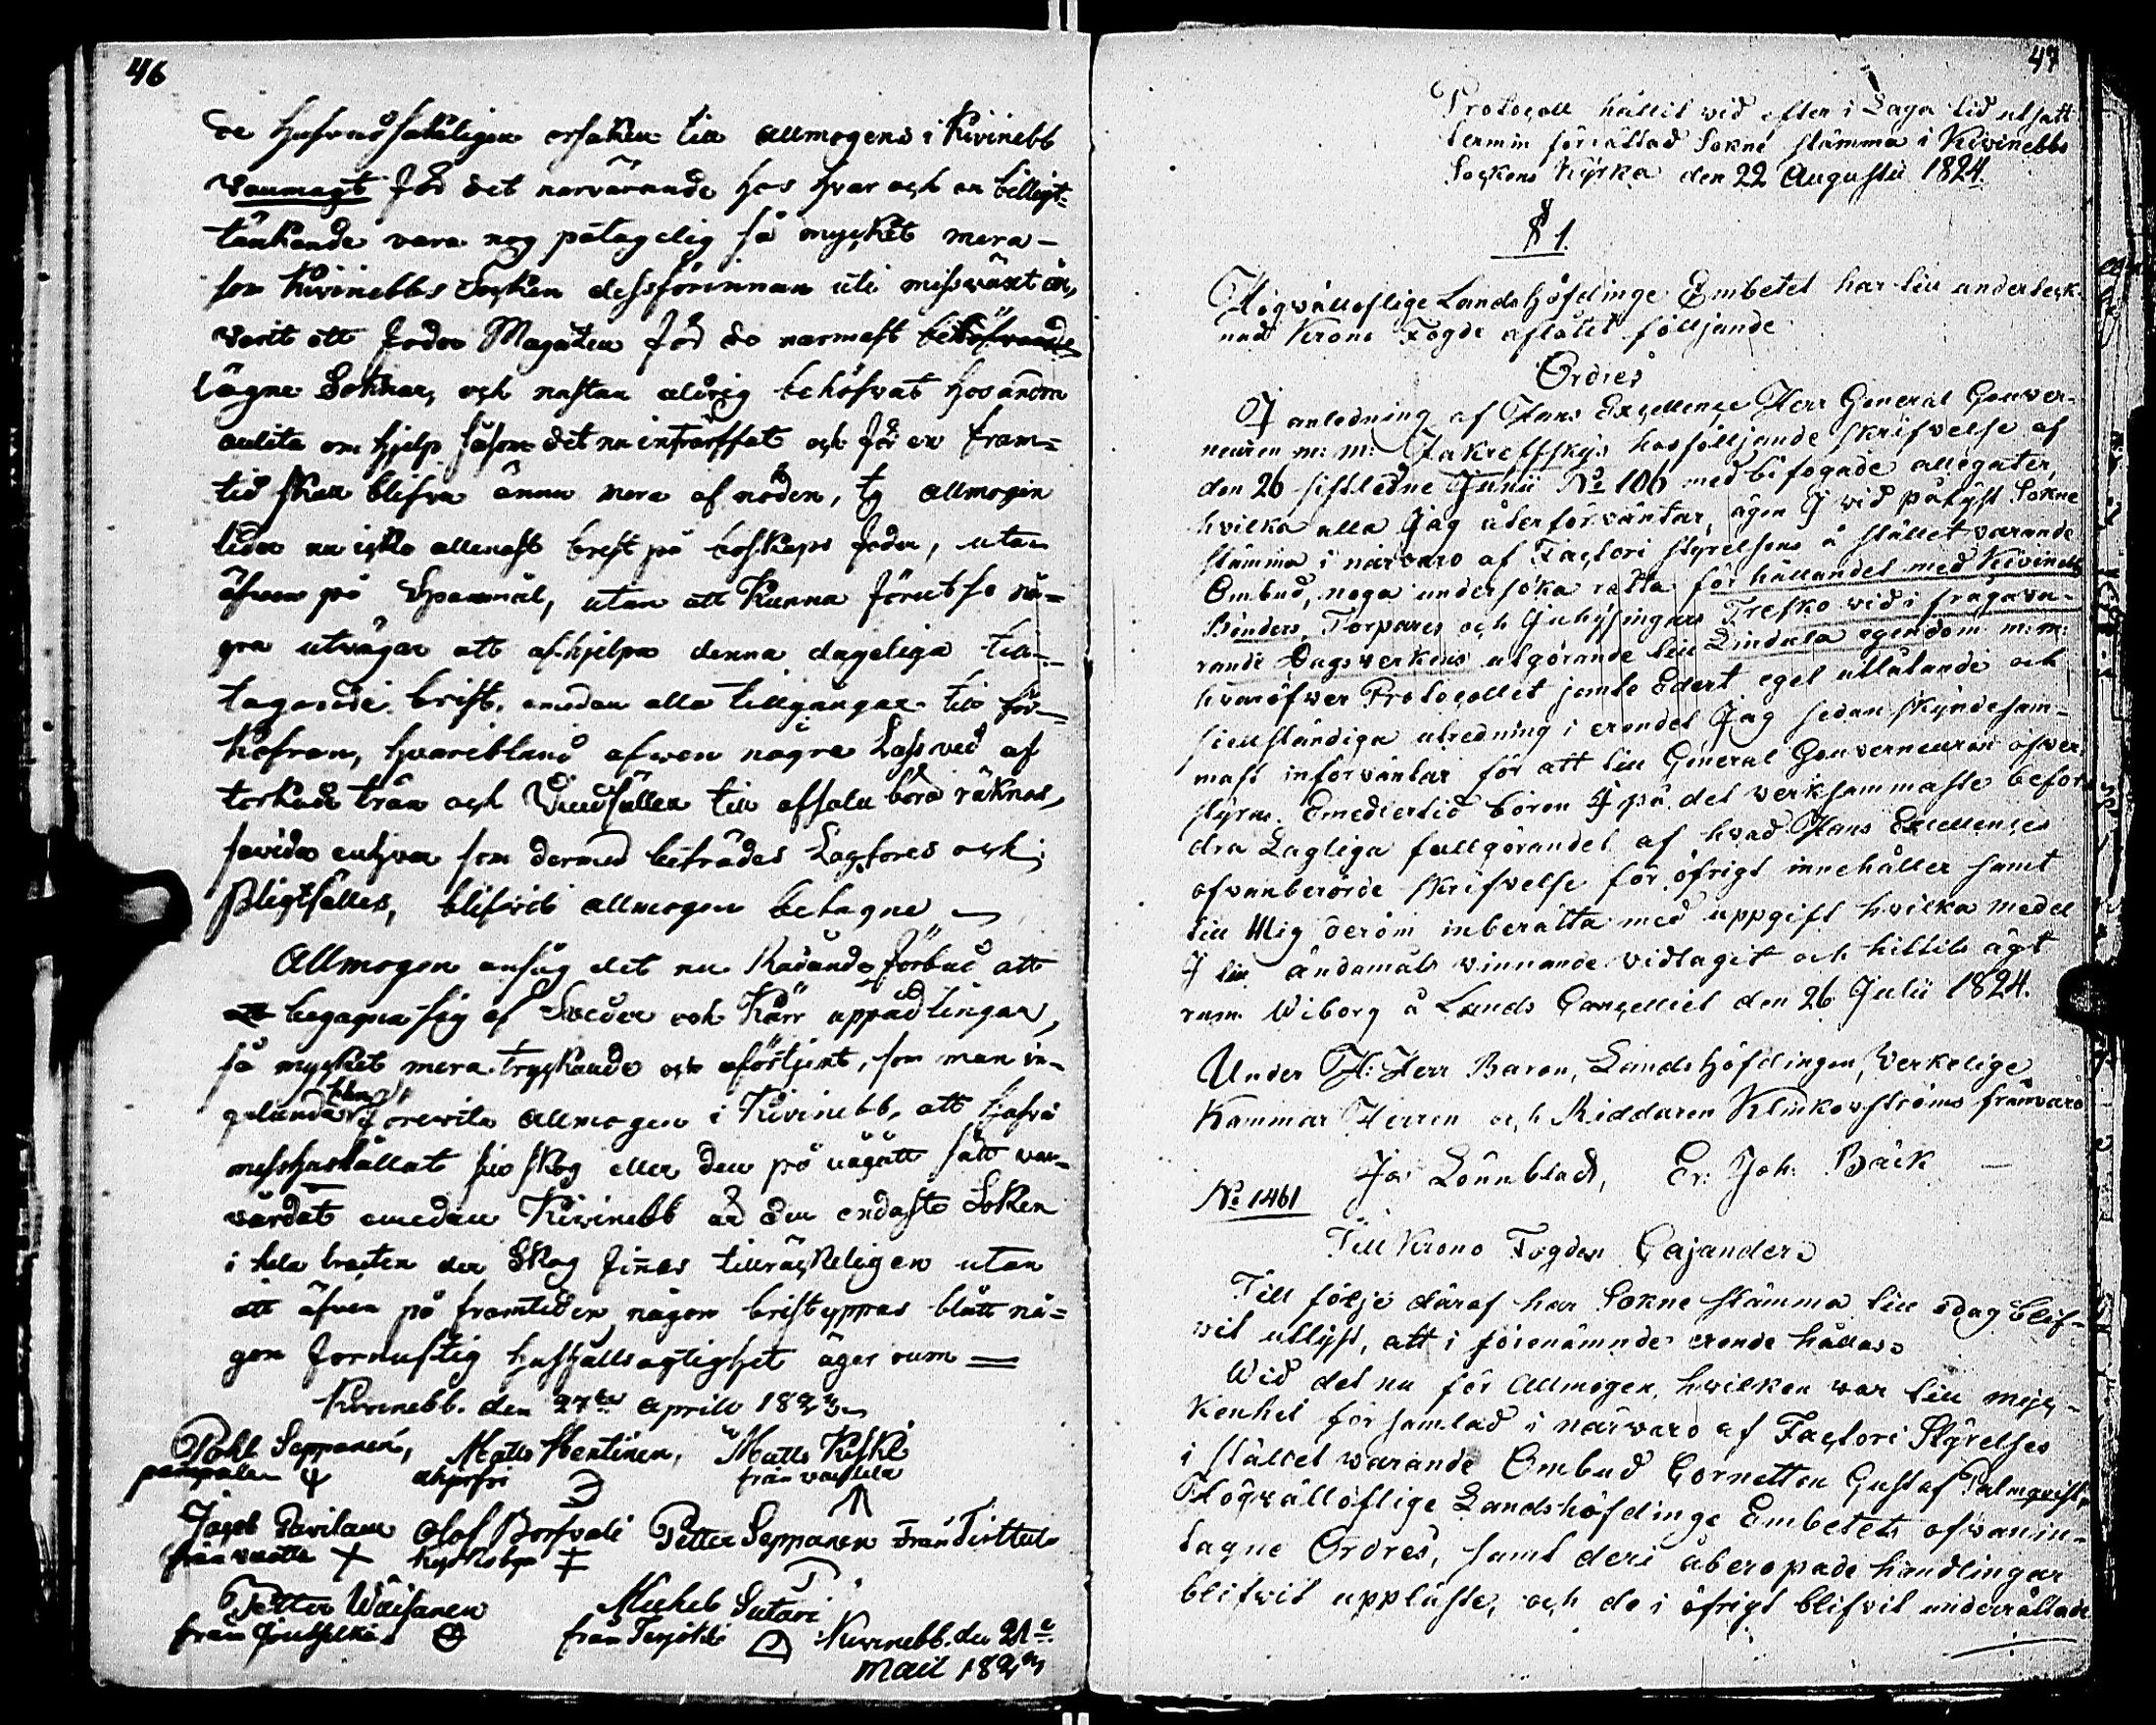 46
de hufvudsakeligen orsaken till Allmogens i Kivinebb
Vanmagt för det narvarande hos hvar och en billigt=
tänkande vara nog påtagelig så mycket mera —
som Kivinebbs Socken dessförinnan uti missväxt år,
varit ett foder Magazin för de narmast behöfvande
lägne Soknar, och nastan aldrig behöfvat hos andra
anlita om hjelp såsom det nu inträffat och för en fram=
tid skall blifva ännu mera af nöden, ty Allmogen
lider nu icke allenast brest på boskaps foder, utan
äfven på Spanmål, utan att kunna förutse nå=
gra utvägar att afhjelpa denna dageliga till=
tagande brist, emedan alla tillgångar till för=
kofran, hvaribland afwen några Lass ved af
torkade trän och Vindfällen till afsalu böra räknas,
savida enhvar som dermed beträdes Lagföres och
Pligtfälles, blifvit allmogen betagne —
Allmogen ansåg det nu Radande förbud att
begagna sig af Sveder och Kärr uppådlingar,
så mycket mera tryckande och oförtjent, som man in=
galunda kan förevita Allmogen i Kivinebb, att hafva
misshushållat sin skog eller den på någått sätt van=
vårdat emedan Kivinebb är den endaste Soken
i hela tracten der Skog finnes tillräckeligen utan
att äfven på framtiden någon brist yppas blått nå=
gon fornuftig hushållsagtighet äger rum —
Kivinebb. den 27de Aprill 1823
Pohl Seppänen, Matts Hentinen, Matts Kiske
pampala från vaittela
Jacob Pavilain Olof Borfvali Petter Seppänen Från Tirttula
från vuotta Kyrkobyn
Petter Wäisänen Michel Sutari
från från Terijoki Kivinebb. den 21
Maii 182
47
Protocoll hållit vid efter i Laga tid utsatt
termin förrättad Sokne stämma i Kivinebbs
Sockens Kyrka den 22 Augusti 1824.
§ 1.
Högvällofliga Lands Höfdinge Embetet har till underteck-
nad Krono Fogde aflåtit följjande
Ordres
I anledning af Hans Excellence Herr General Gouver-
neuren m: m: Zakreffskys hosföljjande skrifvelse af
den 26 sistledne Junii No 106 med bifogade allegater,
hvilka alla Jag återförväntar, ägen I vid pålyst Sokne
stämma i närvaro af Factori styrelsens å stället varande
Ombud, noga undersöka rätta förhållandet med Kivinebb
Bönders, Torpares och Inhysingars Tresko vid i fragava-
rande Dagsverkens utgörande till Lindula egendom m: m:
hvaröfwer Protocollet jemte Edert eget utlåtande och
fullständiga utredning i erendet Jag sedan skyndesam-
mast inforväntar för att till General Gouverneuren öfver
styras. Emedlertid bören I på det verksammaste befor-
dra Lagliga fullgörandet af hvad Hans Excellences
ofvanberörde skrifvelse för öfrigt innehåller samt
till Mig derom inberätta med uppgift hvilka medel
I till ändamåls vinnande vidtagit och hittils ägt
rum. Wiborg å Lands Cancelliet den 26 Julii 1824.
Under H: Herr Baron, Lands Höfdingen, Verkelige
Kammar Herren och Riddaren Klinkowströms frånvaro
Jas Lönnblad, Er: Joh: Bäck —
No 1461
Till Krono Fogden Cajander
Till följe däraf har Sokne stämma till idag blif-
vit utlyst, att i förenämnde erende hållas
Wid det nu för Allmogen, hvilken war till myc-
kenhet församlad i närvaro af Factori Styrelses
i stället warande Ombud Cornetten Gustaf Palmqvist,
Högvällöflige Landshöfdinge Embetets ofvanin-
tagne Ordres, samt deri åberopade handlingar
blifvit uppläste, och de i öfrigt blifvit underrättade